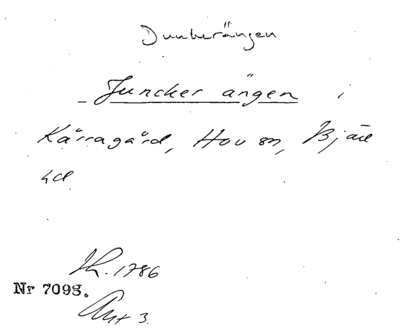 Dunkerängen
Juncker ängen i
Kärragård, Hov sn, Bjäre
hd
Sk. 1786
Nr 7093.
Akt 3.